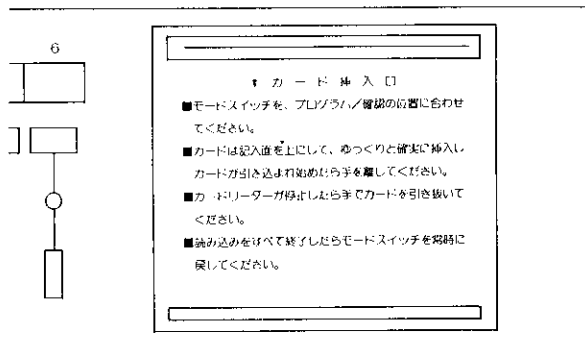 6
カード挿入口
■モードスイッチを、プログラム／確認の位置に合わせ
てください。
■カードは記入面を上にして、ゆっくりと確実に挿入し
カードが引き込まれ始めたら手を離してください。
■カードリーダーが停止したら手でカードを引き抜いて
ください。
■読み込みをすべて終了したらモードスイッチを常時に
戻してください。